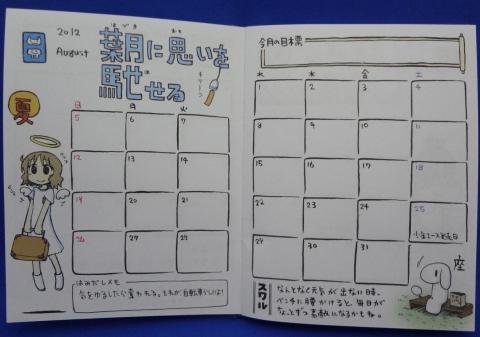 2012
August
はづき おも
葉月に思いを
は
馳せる
夏
日 月 火
5 6 7
12 13 14
19 20 21
26 27 28
はみだしメモ
気をゆるしたら奪われる。それが自転車らしいよ!
今月の目標
水 木 金 土
1 2 3 4
8 9 10 11
15 16 17 18
22 23 24 25
少年エース発売日
29 30 31
座
スワル
なんとなく元気が出ない時、
ベンチに腰かけると、毎日が
ちょっとずつ素敵になるかもね。